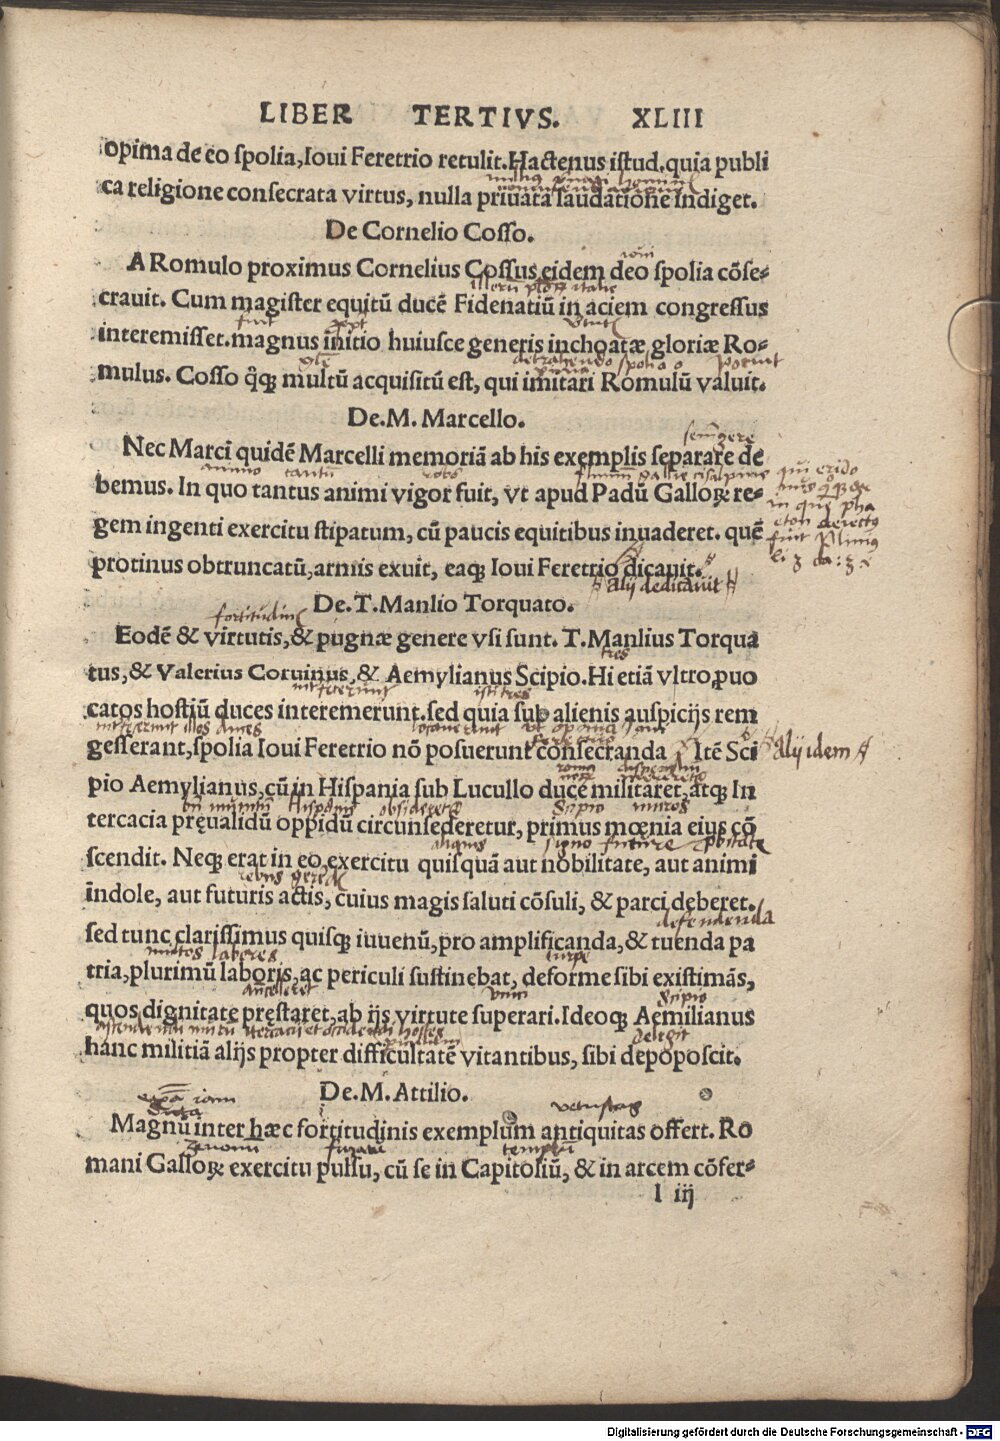 LIBER TERTIVS. XLIII
opima de eo spolia, Ioui Feretrio retulit. Hactenus istud, quia publi
ca religione consecrata virtus, nulla priuata laudatione indiget.
De Cornelio Cosso.
ioui
A Romulo proximus Cornelius Cossus eidem deo spolia cõse-
crauit. Cum magister equitũ ducẽ Fidenatiũ in aciem congressus
interemisset. magnus initio huiusce generis inchoatæ gloriæ Ro-
detrahendo spolia
mulus. Cosso q̃q; multũ acquisitũ est, qui imitari Romulũ valuit.
De. M. Marcello.
Nec Marci quidẽ Marcelli memoriã ab his exemplis separare de
bemus. In quo tantus animi vigor fuit, vt apud Padũ Galloꝝ re-
gem ingenti exercitu stipatum, cũ paucis equitibus inuaderet. quẽ
protinus obtruncatũ, armis exuit, eaq; Ioui Feretrio dicauit.
alij dedicauit
De. T. Manlio Torquato.
Eodẽ & virtutis, & pugnæ genere vsi sunt. T. Manlius Torqua
tres
tus, & Valerius Coruinus, & Aemylianus Scipio. Hi etiã vltro ꝓuo
interfecerunt isti tres
catos hostiũ duces interemerunt. sed quia sub alienis auspicijs rem
gesserant, spolia Ioui Feretrio nõ posuerunt consecranda Itẽ Sci
alij idem
pio Aemylianus, cũ in Hispania sub Lucullo duce militaret, atq; In
tercacia pręualidũ oppidũ circunsederetur, primus mœnia eius cõ
scendit. Neq; erat in eo exercitu quisquã aut nobilitate, aut animi
indole, aut futuris actis, cuius magis saluti cõsuli, & parci deberet.
defendenda
sed tunc clarissimus quisq; iuuenũ, pro amplificanda, & tuenda pa
multos labores turpe
tria, plurimũ laboris, ac periculi sustinebat, deforme sibi existimãs,
Scipio
quos dignitate pręstaret, ab ijs virtute superari. Ideoq; Aemilianus
hanc militiã alijs propter difficultatẽ vitantibus, sibi depoposcit.
De. M. Attilio.
vetustas
Magnũ inter hæc fortitudinis exemplum antiquitas offert. Ro
mani Galloꝝ exercitu pulsu, cũ se in Capitoliũ, & in arcem cõfer-
l iij
Digitalisierung gefördert durch die Deutsche Forschungsgemeinschaft - DFG